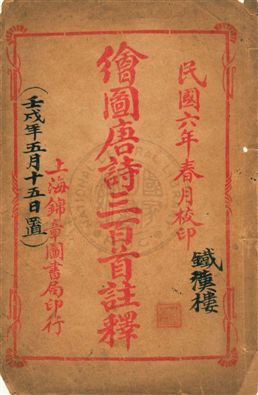 民國六年春月校印
鐵漢樓
繪圖唐詩三百首註釋
上海錦章圖書局印行
(壬戌年五月十五日置)